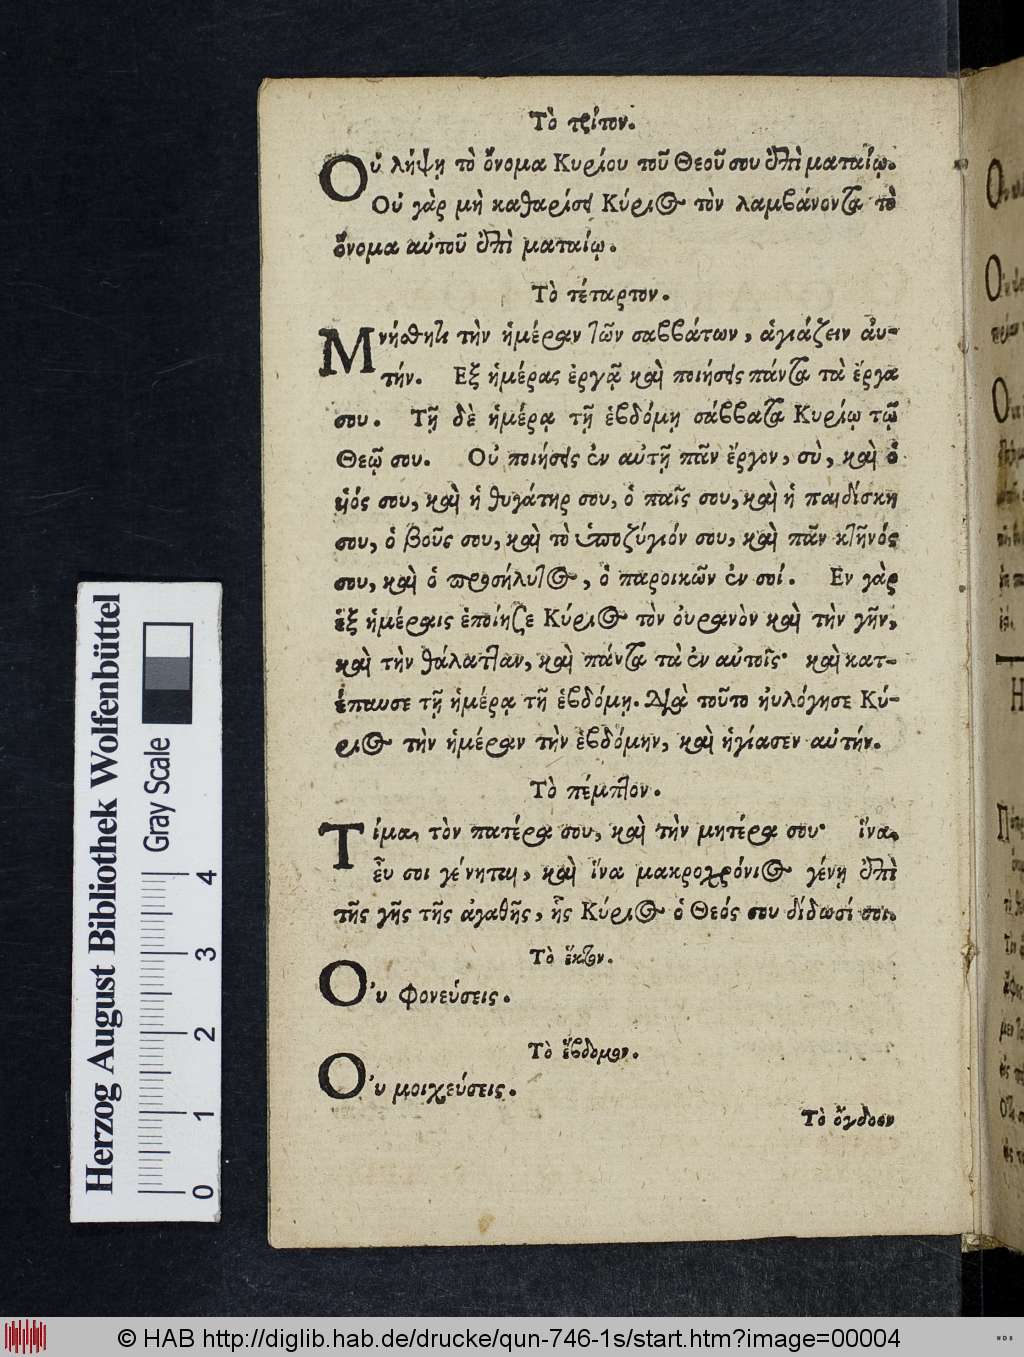 Τὸ τρίτον.
Οὐ λήψῃ τὸ ὄνομα Κυρίου τοῦ Θεοῦ σου ἐπὶ ματαίῳ.
Οὐ γὰρ μὴ καθαρίσῃ Κύριος τὸν λαμβάνοντα τὸ
ὄνομα αὐτοῦ ἐπὶ ματαίῳ.
Τὸ τέταρτον.
Μνήσθητι τὴν ἡμέραν τῶν σαββάτων, ἁγιάζειν αὐ-
τήν. Εξ ἡμέρας ἐργᾷ καὶ ποιήσεις πάντα τὰ ἔργα
σου. Τῇ δὲ ἡμέρᾳ τῇ ἑβδόμῃ σάββατα Κυρίῳ τῷ
Θεῷ σου. Οὐ ποιήσεις ἐν αὐτῇ πᾶν ἔργον, σὺ, καὶ ὁ
ὑιός σου, καὶ ἡ θυγάτηρ σου, ὁ παῖς σου, καὶ ἡ παιδίσκη
σου, ὁ βοῦς σου, καὶ τὸ ὑποζύγιόν σου, καὶ πᾶν κτῆνός
σου, καὶ ὁ προσήλυτος, ὁ παροικῶν ἐν σοί. Εν γὰρ
ἓξ ἡμέραις ἐποίησε Κύριος τὸν ὀυρανὸν καὶ τὴν γῆν,
καὶ τὴν θάλατταν, καὶ πάντα τὰ ἐν αὐτοῖς· καὶ κατ-
έπαυσε τῇ ἡμέρᾳ τῇ ἑβδόμῃ. Διὰ τοῦτο ηὐλόγησε Κύ-
ριος τὴν ἡμέραν τὴν ἑβδόμην, καὶ ἡγίασεν αὐτήν.
Τὸ πέμπτον.
Τίμα τὸν πατέρα σου, καὶ τὴν μητέρα σου· ἵνα
εὖ σοι γένηται, καὶ ἵνα μακροχρόνιος γένῃ ἐπὶ
τῆς γῆς τῆς ἀγαθῆς, ἧς Κύριος ὁ Θεός σου δίδωσί σοι.
Τὸ ἕκτον.
Ο᾽υ φονεύσεις.
Τὸ ἕβδομον.
Ο᾽υ μοιχεύσεις.
Τὸ ὄγδοον
Herzog August Bibliothek Wolfenbüttel
Gray Scale
0 1 2 3 4
© HAB http://diglib.hab.de/drucke/qun-746-1s/start.htm?image=00004